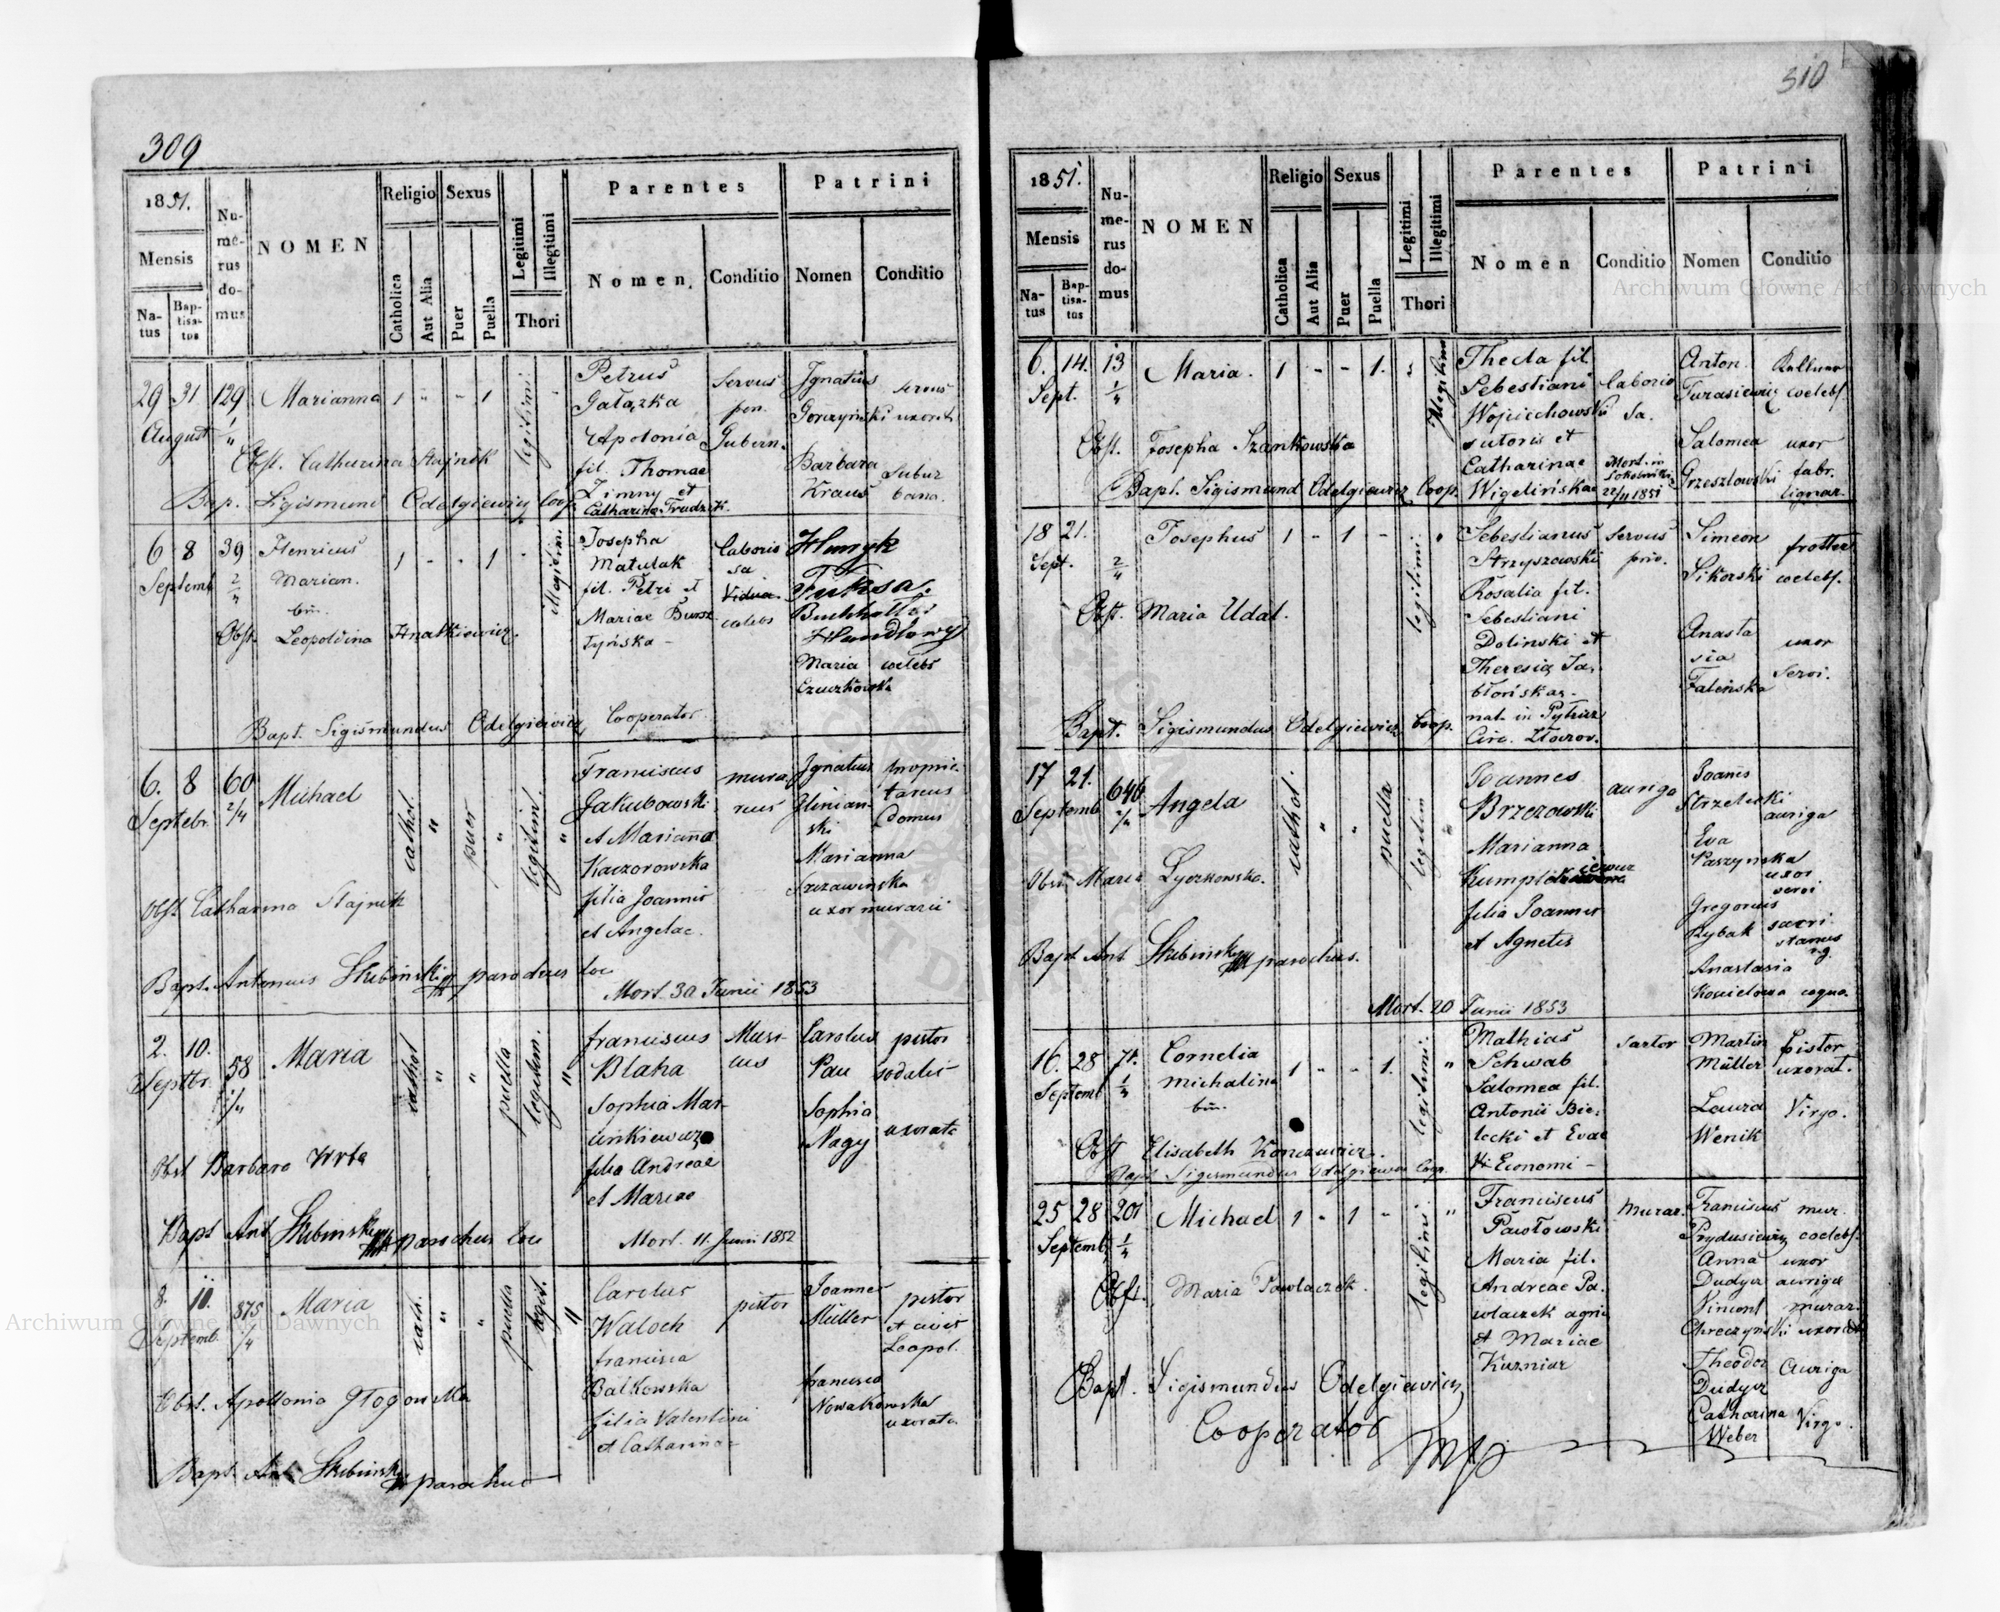 309
1851.
Mensis
Natus
Baptisatus
Numerus domus
NOMEN
Religio
Catholica
Aut Alia
Sexus
Puer
Puella
Legitimi
Illegitimi
Thori
Parentes
Nomen.
Conditio
Patrini
Nomen
Conditio
29 31 129 Marianna 1 " - 1 legitimi -
August 1/4
Petrus
Gałązka
Apolonia
fil. Thomae
Zimny et
Catharina Trudzik.
servus
pen.
Gubern.
Ignatius servus
Gorczyński uxorat.
Barbara
Kraus
subur
bana.
Obst. Catharina Stajnik
Bap. Sigismund Odelgiewicz Coop.
6 8 39 Henricus 1 - - 1 - illegitimi
Septemb 2/4 Marian.
bin.
Josepha
Matulak
fil. Petri et
Mariae Bursz
tyńska -
laborio
sa
Vidua.
celebs
Henryk
Fuksa.
Buchhalter
Handlowy
Maria coelebs
Czuczkowska
Obst. Leopoldina Hnatkiewicz.
Bapt. Sigismundus Odelgiewicz Cooperator
6. 8 60 Michael cathol. " puer " legitim. "
Septebr. 2/4
Franciscus
Jakubowski
et Marianna
Kaczorowska
filia Joannis
et Angelae.
mura
rius
Ignatius
Glinian-
ski
proprie-
tarius
domus
Marianna
Szczawinska
uxor murarii
Obst Catharina Stajnik
Bapt. Antonius Skubinski parochus loc
Mort. 30 Junii 1853
2. 10. 58 Maria cathol " " puella legitim. "
Septbr. 1/4
Franciscus
Blaha
Sophia Mar-
cinkiewicz
filia Andreae
et Mariae
Musi-
cus
Carolus pistor
Pau sodalis
Sophia
Nagy uxorata
Obst Barbara Wrba
Bapt Ant Skubinski parochus loci
Mort. 11. Junii 1852
8. 11. 875 Maria cath. " " puella legit. "
Septemb. 1/4
Carolus
Waloch
Francisca
Balkowska
filia Valentini
et Catharinae
pistor
Joannes pistor
Müller et civis
Leopol.
Francisca
Nowakowska
uxorata
Obst. Apollonia Głogowska
Bapt. Ant Skubinski parochus
310
1851.
Mensis
Natus
Baptisatus
Numerus domus
NOMEN
Religio
Catholica
Aut Alia
Sexus
Puer
Puella
Legitimi
Illegitimi
Thori
Parentes
Nomen
Conditio
Patrini
Nomen
Conditio
6. 14. 13 Maria. 1 - - 1. " illegitima
Sept. 1/4
Thecla fil.
Sebestiani
Wojciechowski
sutoris et
Catharinae
Wigelińskae
laborio
sa.
Mort. in
22/11 1851
Anton. Kellner
Turasiewicz coelebs.
Salomea uxor
Grzeszlowski fabr.
lignar.
Obst. Josepha Szankowska
Bapt. Sigismund Odelgiewicz Coop.
18 21. Josephus 1 - 1 - legitimi. "
Sept. 2/4
Sebestianus
Strzyszowski
Rosalia fil.
Sebestiani
Dolinski et
Theresia Ja.
błońskae-
nat. in Pytricz
Circ. Złoczov.
servus
priv.
Simeon frotter
Sikorski coelebs.
Anasta
sia
Faleńska
uxor
servi.
Obst. Maria Udal.
Bapt. Sigismundus Odelgiewicz Coop.
17 21. 646 Angela cathol. " " puella legitim "
Septemb 2/4
Joannes
Brzezowski
Marianna
filia Joannis
et Agnetis
auriga
Joanes
Strzelecki
auriga
Eva
Paszynska
uxor
servi
Gregorius
Rybak sacri
stanus
Anastasia
Kosielowa cogna.
Obst. Maria Lyczkowska.
Bapt Ant Skubinski parochus.
Mort. 20 Junii 1853
16. 28 71. Cornelia 1 - - 1. legitimi. "
Septemb 1/4 Michalina
bin.
Mathias
Schwab
Salomea fil.
Antonii Bie-
lecki et Evae
Economi -
sartor
Martin pistor
Müller uxorat.
Laura Virgo.
Wenik
Obst Elisabeth Konczewicz.
Bapt Sigismundus Odelgiewicz Coop.
25 28 201 Michael 1 - 1 - legitimi "
Septemb 1/4
Franciscus
Pawłowski
Maria fil.
Andreae Pa-
wlaczek agric
et Mariae
Kuzniar
Murar.
Franciscus mur.
Prydusiewicz coelebs.
Anna uxor
Dudycz auriga
Vincent murar.
Chreczynski uxorat
Theodor Auriga
Dudycz
Catharina Virgo.
Weber
Obst. Maria Pawlaczek.
Bapt. Sigismundus Odelgiewicz
Cooperator
mp
Archiwum Główne Akt Dawnych
Archiwum Główne Akt Dawnych